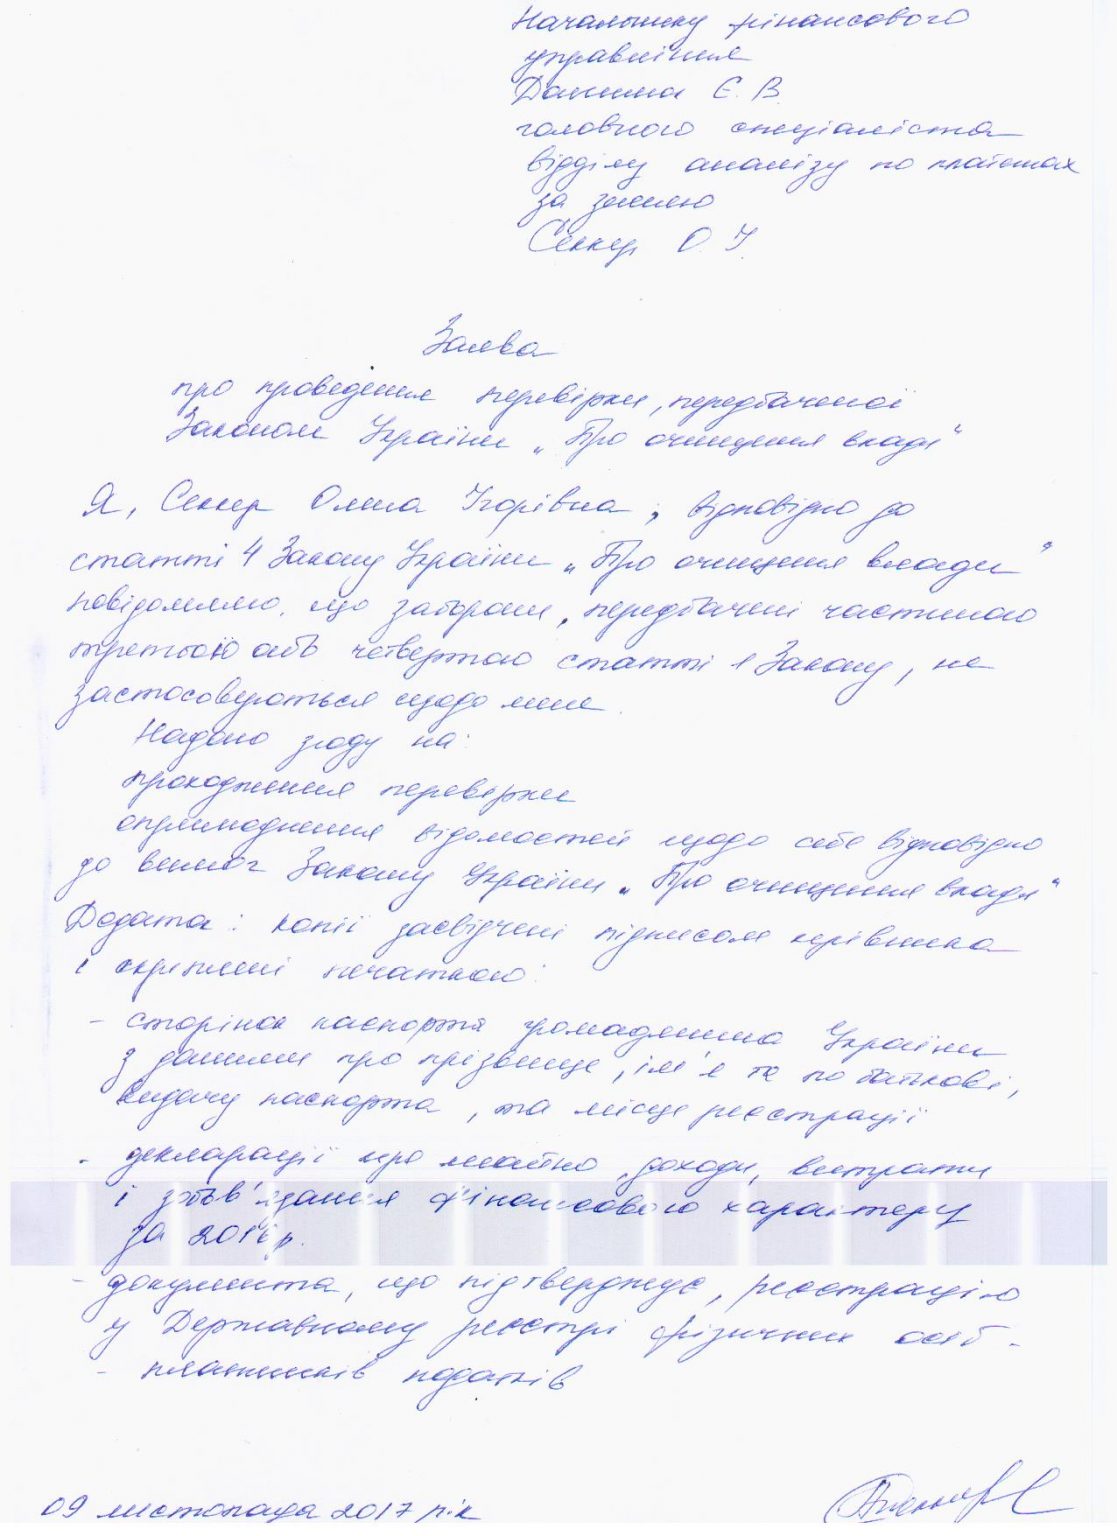 Начальнику фінансового
управління
Данина Є. В.
головного спеціаліста
відділу аналізу по платежах
за землю
Секкер О. І.
Заява
про проведення перевірки, передбаченої
Законом України „Про очищення влади“
Я, Секкер Олена Ігорівна, відповідно до
статті 4 Закону України „Про очищення влади“
повідомляю, що заборони, передбачені частиною
третьою або четвертою статті 1 Закону, не
застосовуються щодо мене.
Надаю згоду на:
проходження перевірки
оприлюднення відомостей щодо себе відповідно
до вимог Закону України „Про очищення влади“
Додаток: копії засвідчені підписом керівника
і скріплені печаткою:
- сторінок паспорта громадянина України
з даними про прізвище, ім'я та по батькові,
видачу паспорта, та місце реєстрації
- декларації про майно, доходи, витрати
і зобов'язання фінансового характеру
за 2016 р.
- документа, що підтверджує, реєстрацію
у Державному реєстрі фізичних осіб -
- платників податків
09 листопада 2017 рік